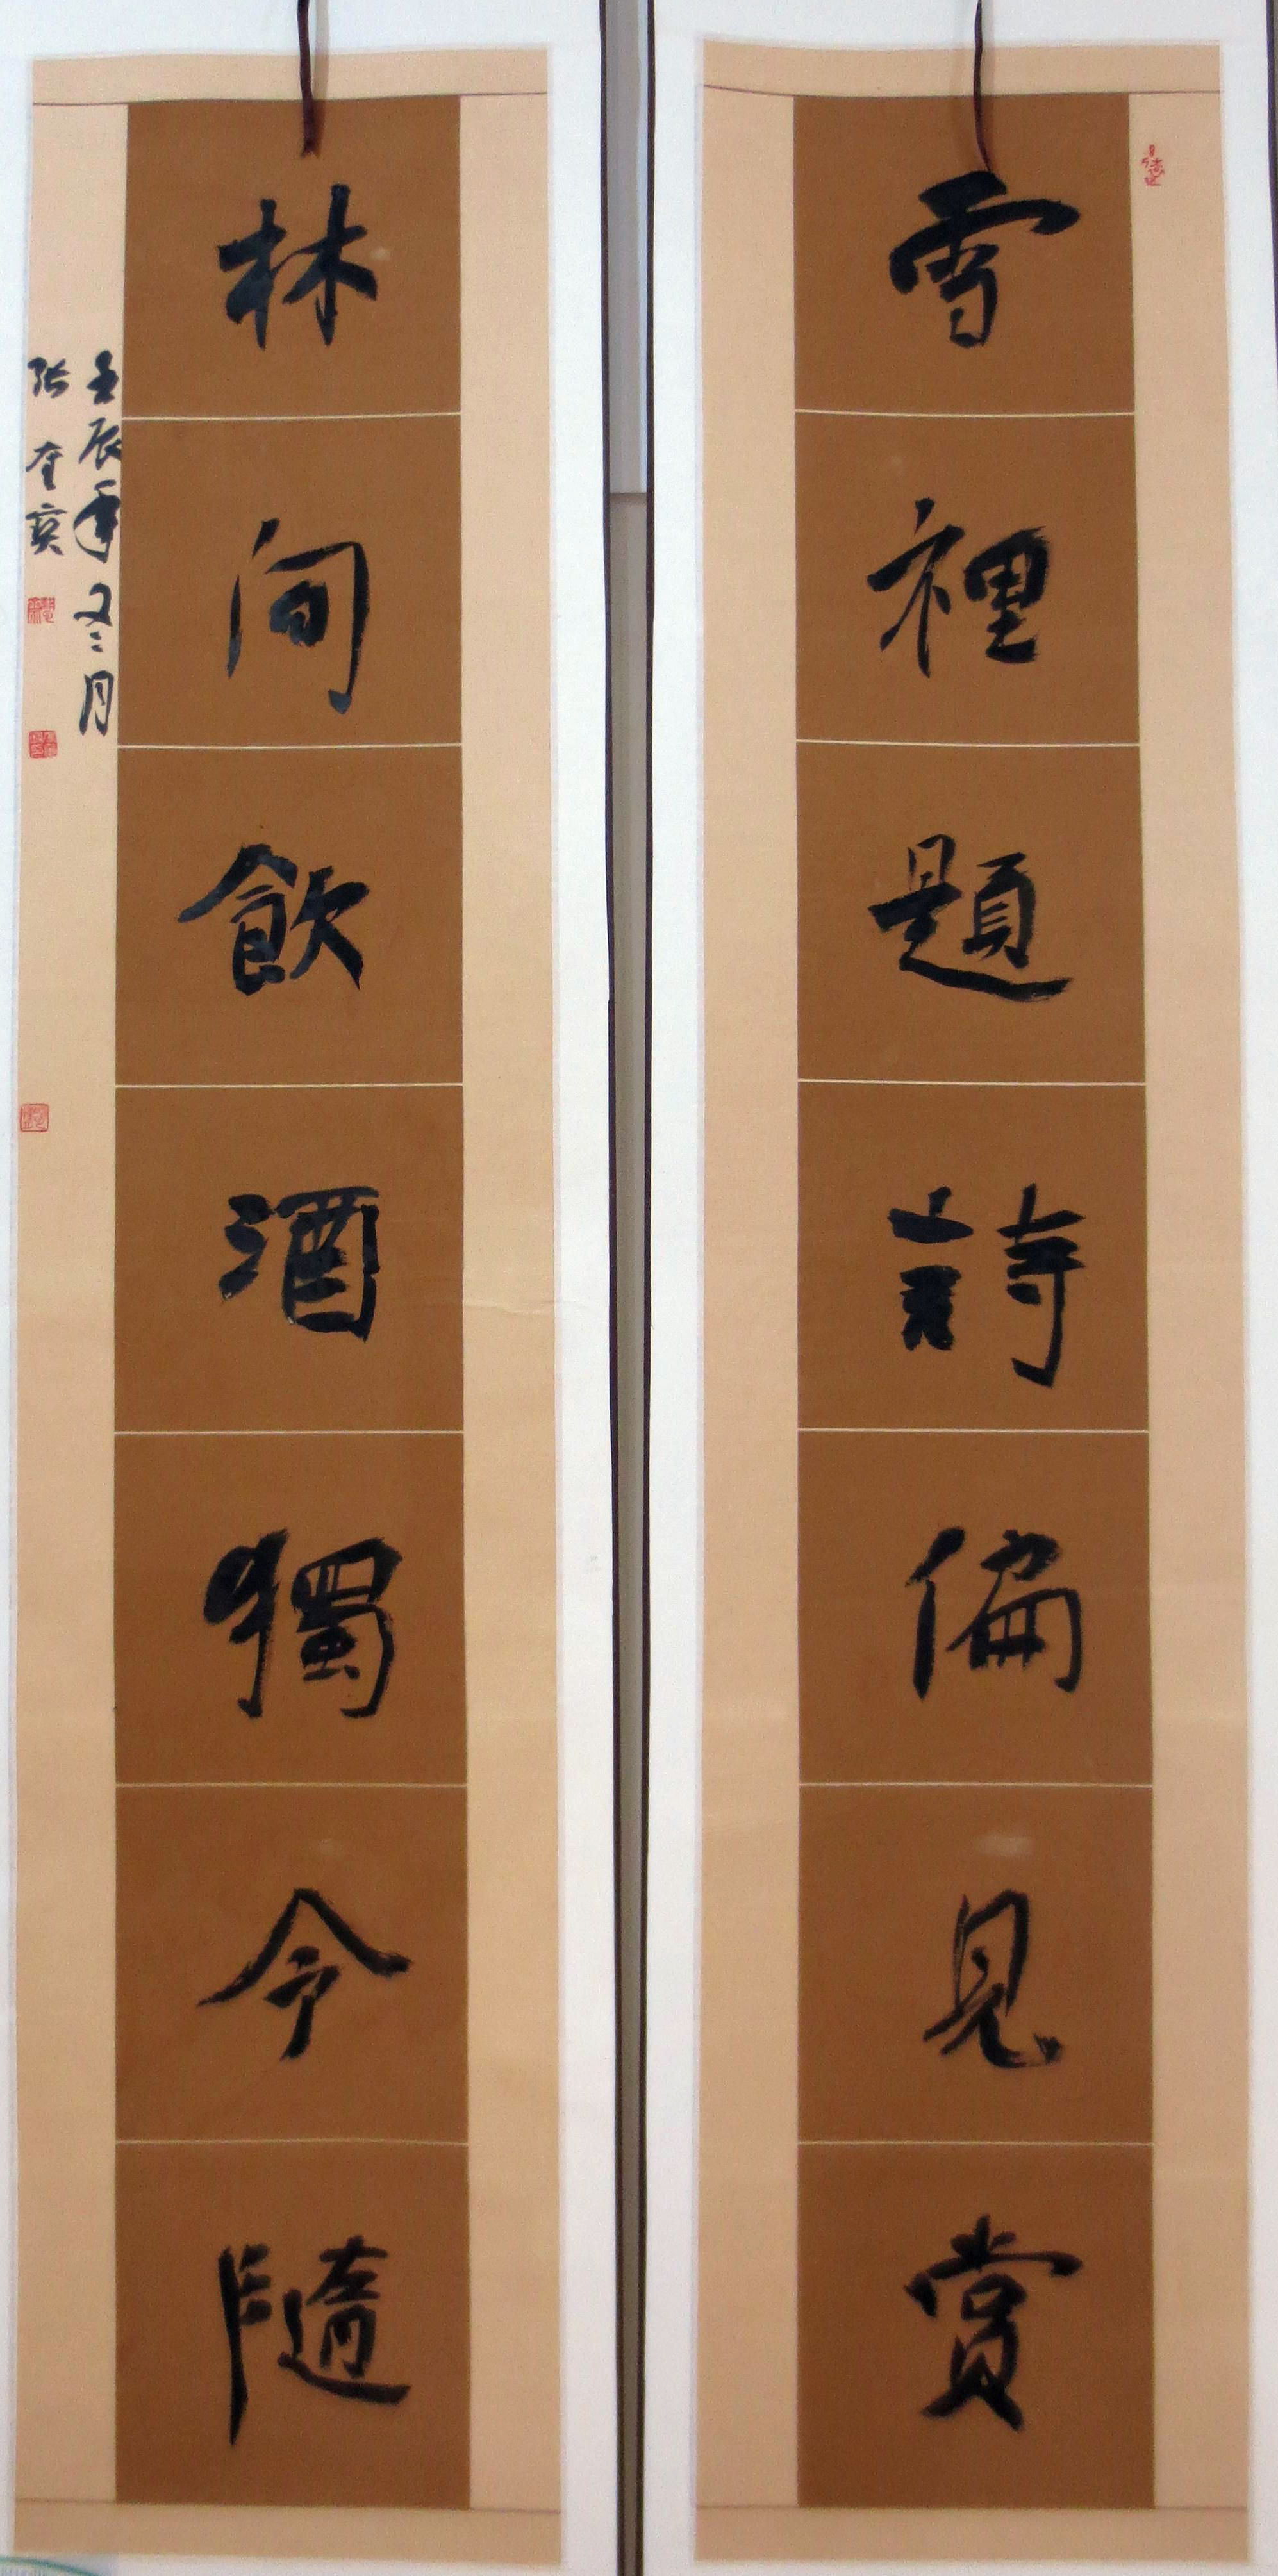 雪裡題詩偏見賞
林間飲酒獨令隨
壬辰年冬月
張奎英